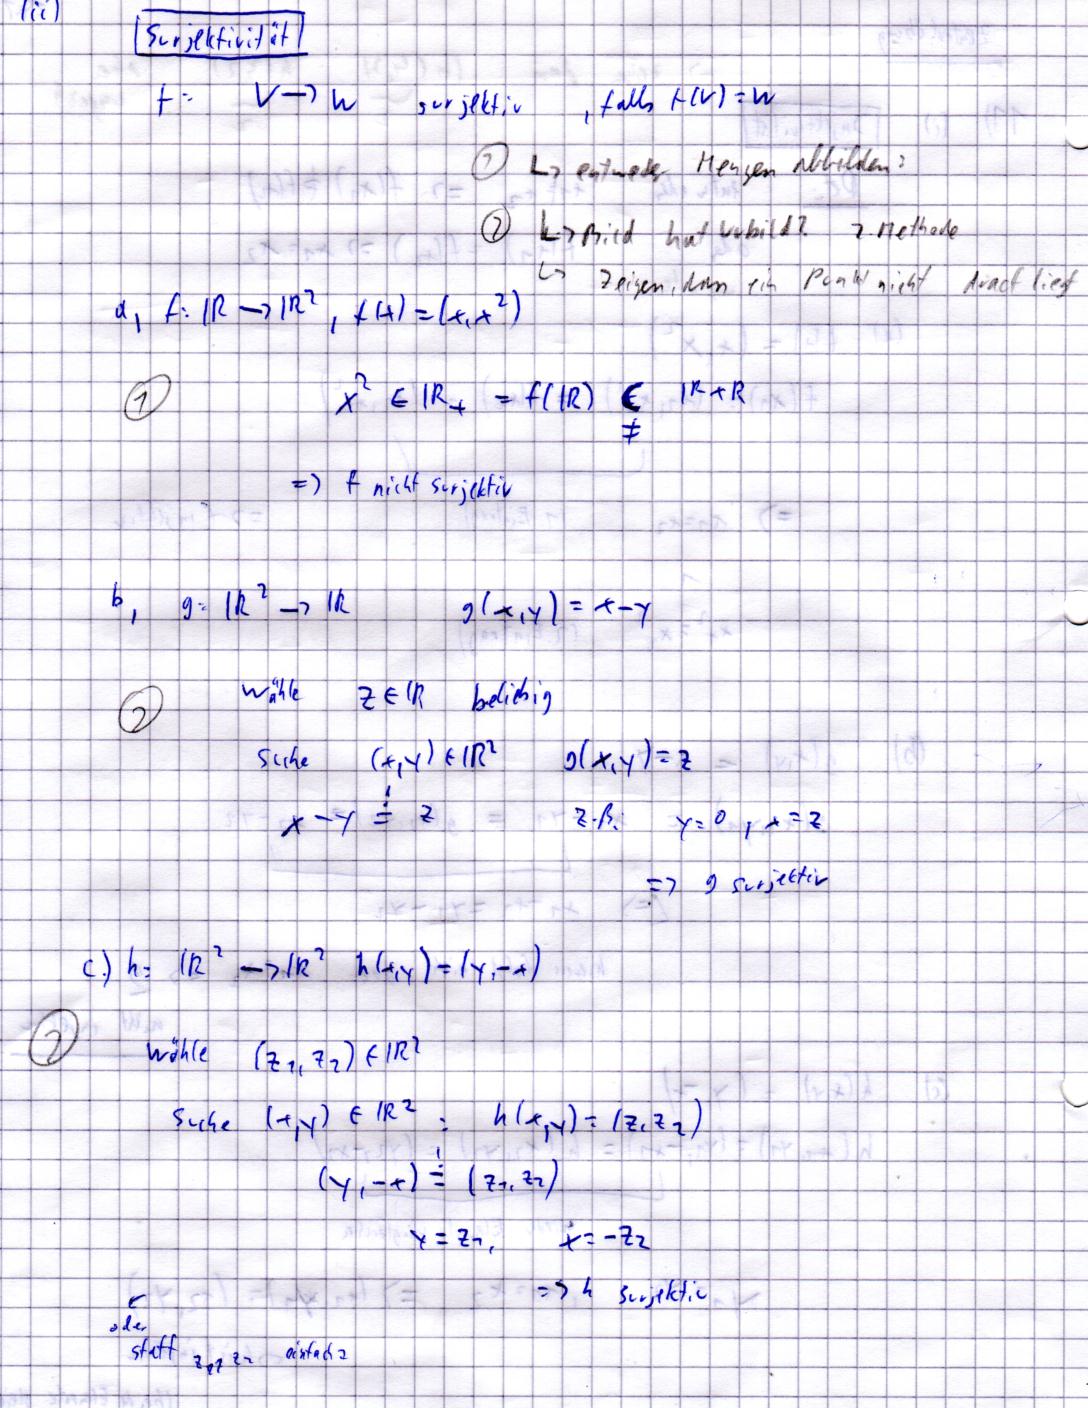 (ii)
Surjektivität
f: V → W surjektiv , falls f(V) = W
① ↳ entweder Mengen abbilden:
② ↳ Bild hat Urbild? z-Methode
↳ zeigen, dass ein Punkt nicht drauf liegt
a, f: ℝ → ℝ², f(x) = (x, x²)
① x² ∈ ℝ₊ = f(ℝ) ⊊ ℝ×ℝ
=> f nicht surjektiv
b, g: ℝ² → ℝ g(x,y) = x-y
② Wähle z ∈ ℝ beliebig
Suche (x,y) ∈ ℝ² g(x,y) = z
x - y =! z z.B. y = 0, x = z
=> g surjektiv
c.) h: ℝ² → ℝ² h(x,y) = (y,-x)
② Wähle (z₁, z₂) ∈ ℝ²
Suche (x,y) ∈ ℝ² : h(x,y) = (z, z₂)
(y,-x) =! (z₁, z₂)
y = z₁, x = -z₂
=> h surjektiv
oder
statt z₁, z₂ einfach z